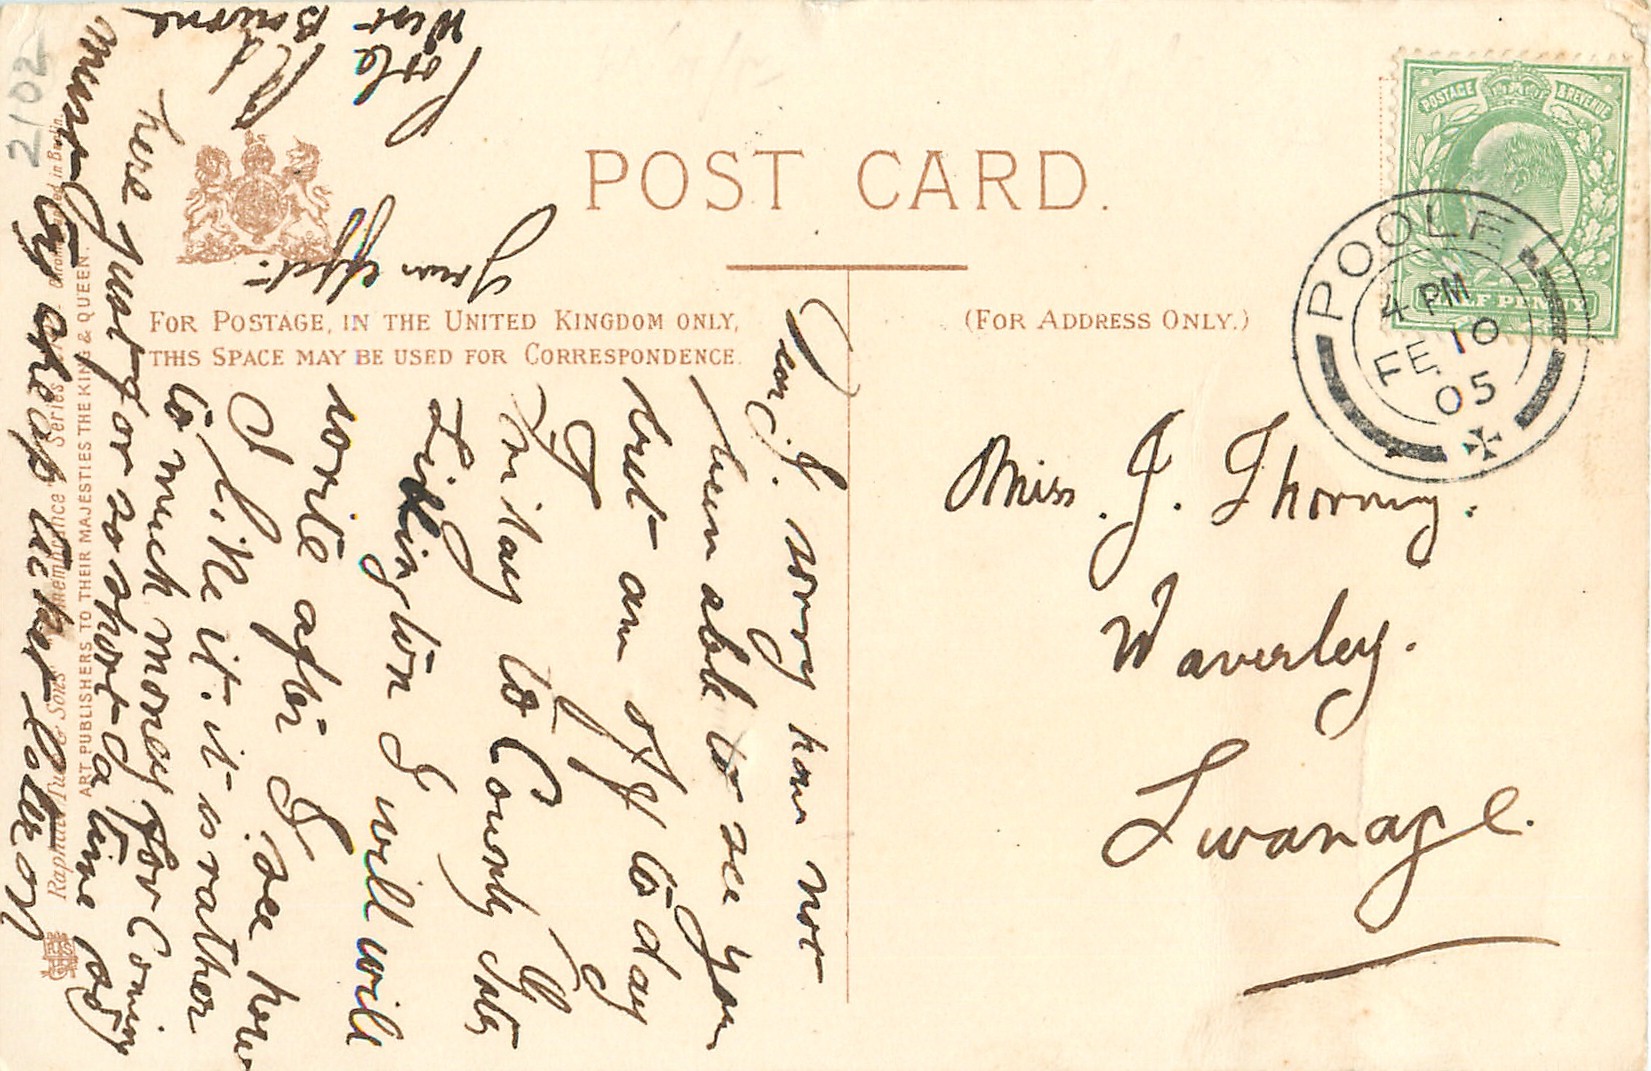 POST CARD.
FOR POSTAGE, IN THE UNITED KINGDOM ONLY,
THIS SPACE MAY BE USED FOR CORRESPONDENCE.
(FOR ADDRESS ONLY.)
POSTAGE & REVENUE
HALF PENNY
POOLE
4 PM
FE 10
05
Miss. J. Thorny.
Waverley.
Swanage.
Dear J. sorry have not
been able to see you
but am off to day
to County Gts
I will
write after I see how
I like it. it is rather
to much money for Coming
here just for so short a time
must try cheap ticket later on
Your affect:
West Bourne
2102
Raphael Tuck & Sons' Remembrance Series
ART PUBLISHERS TO THEIR MAJESTIES THE KING & QUEEN.
in Berlin